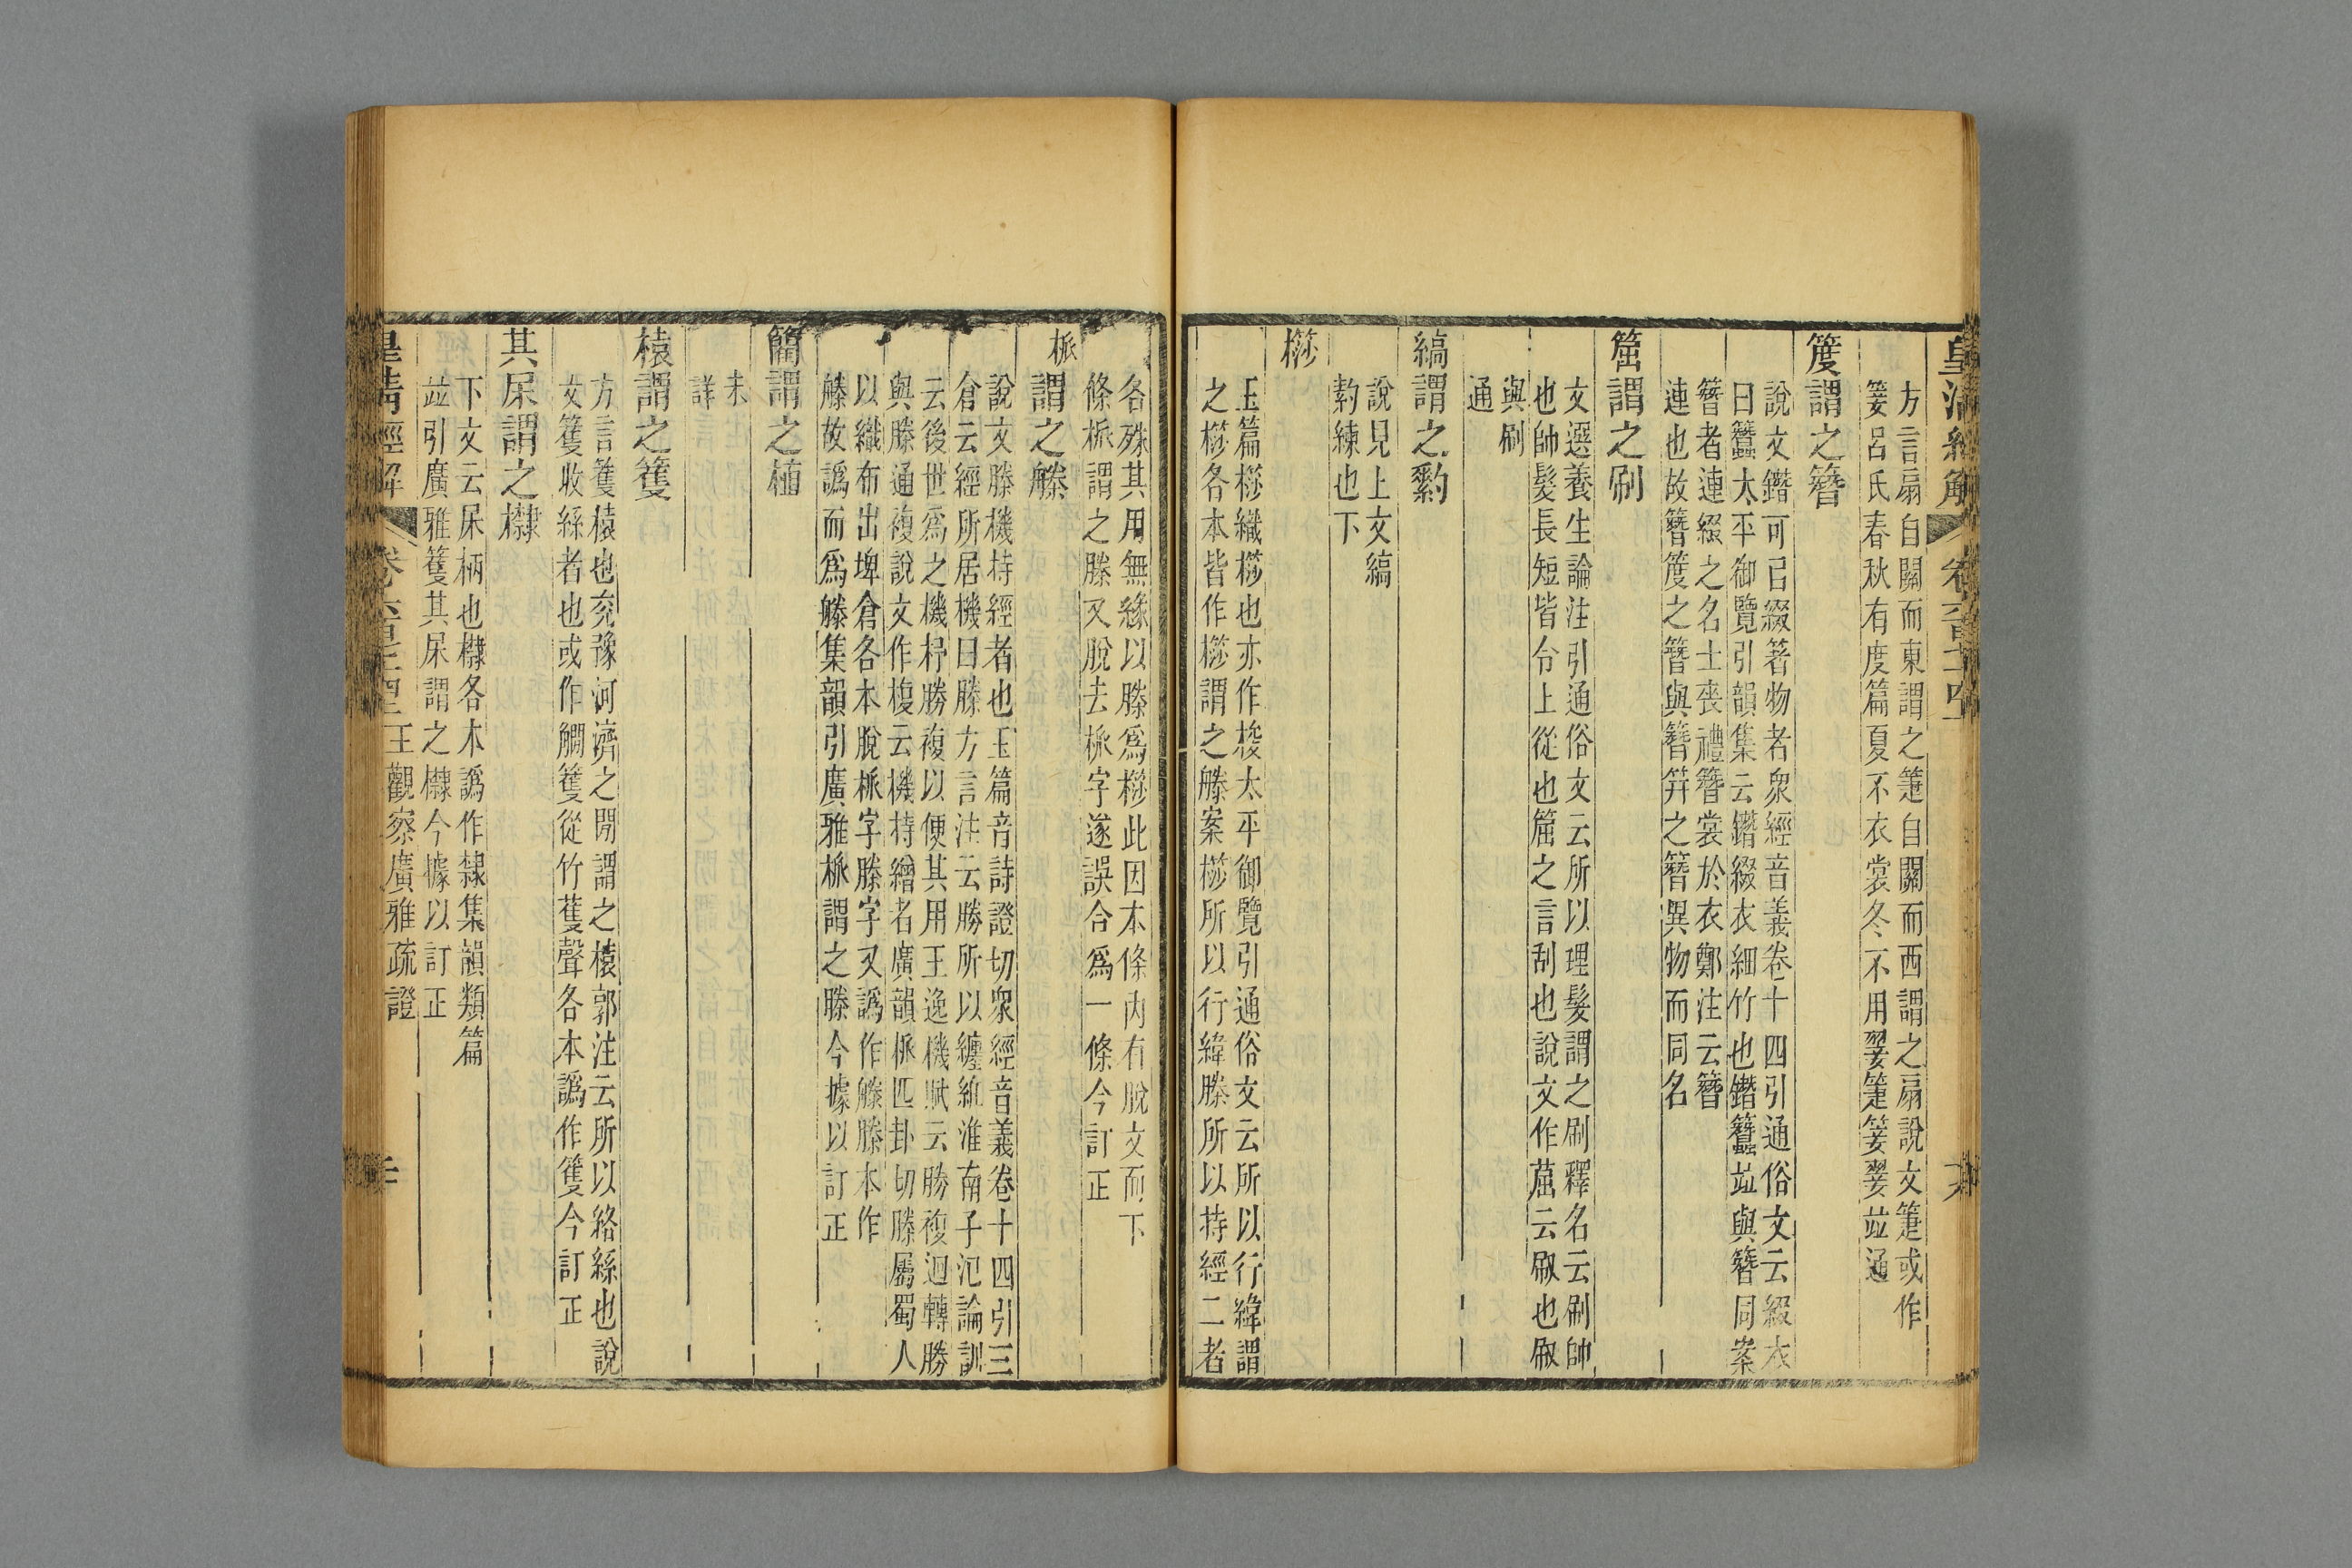 皇清經解
方言扇自關而東謂之箑自關而西謂之扇說文箑或作
篓呂氏春秋有度篇夏不衣裘冬不用翣箑篓翣竝通
謂之簪
說文鐕可㠯綴箸物者眾經音義卷十四引通俗文云綴衣
曰蠶太平御覽引韻集云鐕綴衣細竹也鐕蠶竝與簪同案
簪者連綴之名士喪禮簪裳於衣鄭注云簪
連也故簪之簪與簪笄之簪異物而同名
謂之刷
文選養生論注引通俗文云所以理髮謂之刷釋名云刷帥
也帥髮長短皆令上從也之言刮也說文作云㕞也㕞
與刷
通
縞謂之
說見上文縞
練也下
玉篇織也亦作梭太平御覽引通俗文云所以行緯謂
之各本皆作謂之榺案所以行緯榺所以持經二者
各殊其用無緣以榺爲此因本條內有脫文而下
條𣏟謂之榺又脫去𣏟字遂誤合爲一條今訂正
𣏟謂之榺
說文榺機持經者也玉篇音詩證切眾經音義卷十四引三
倉云經所居機曰榺方言注云勝所以纏紝淮南子氾論訓
云後世爲之機杼勝複以便其用王逸機賦云勝複迴轉勝
與榺通複說文作椱云機持繒者廣韻𣏟匹卦切榺屬蜀人
以織布出埤倉各本脫𣏟字榺字又譌作榺榺本作
榺故譌而爲榺集韻引廣雅𣏟謂之榺今據以訂正
謂之
未
詳
榬謂之籰
方言籰榬也兗豫河濟之閒謂之榬郭注云所以絡絲也說
文籰收絲者也或作䌦籰從竹蒦聲各本譌作篗今訂正
其㞓謂之㯤
下文云㞓柄也㯤各本譌作隸集韻類篇
竝引廣雅籰其㞓謂之㯤今據以訂正
皇清經解
王觀察廣雅疏證